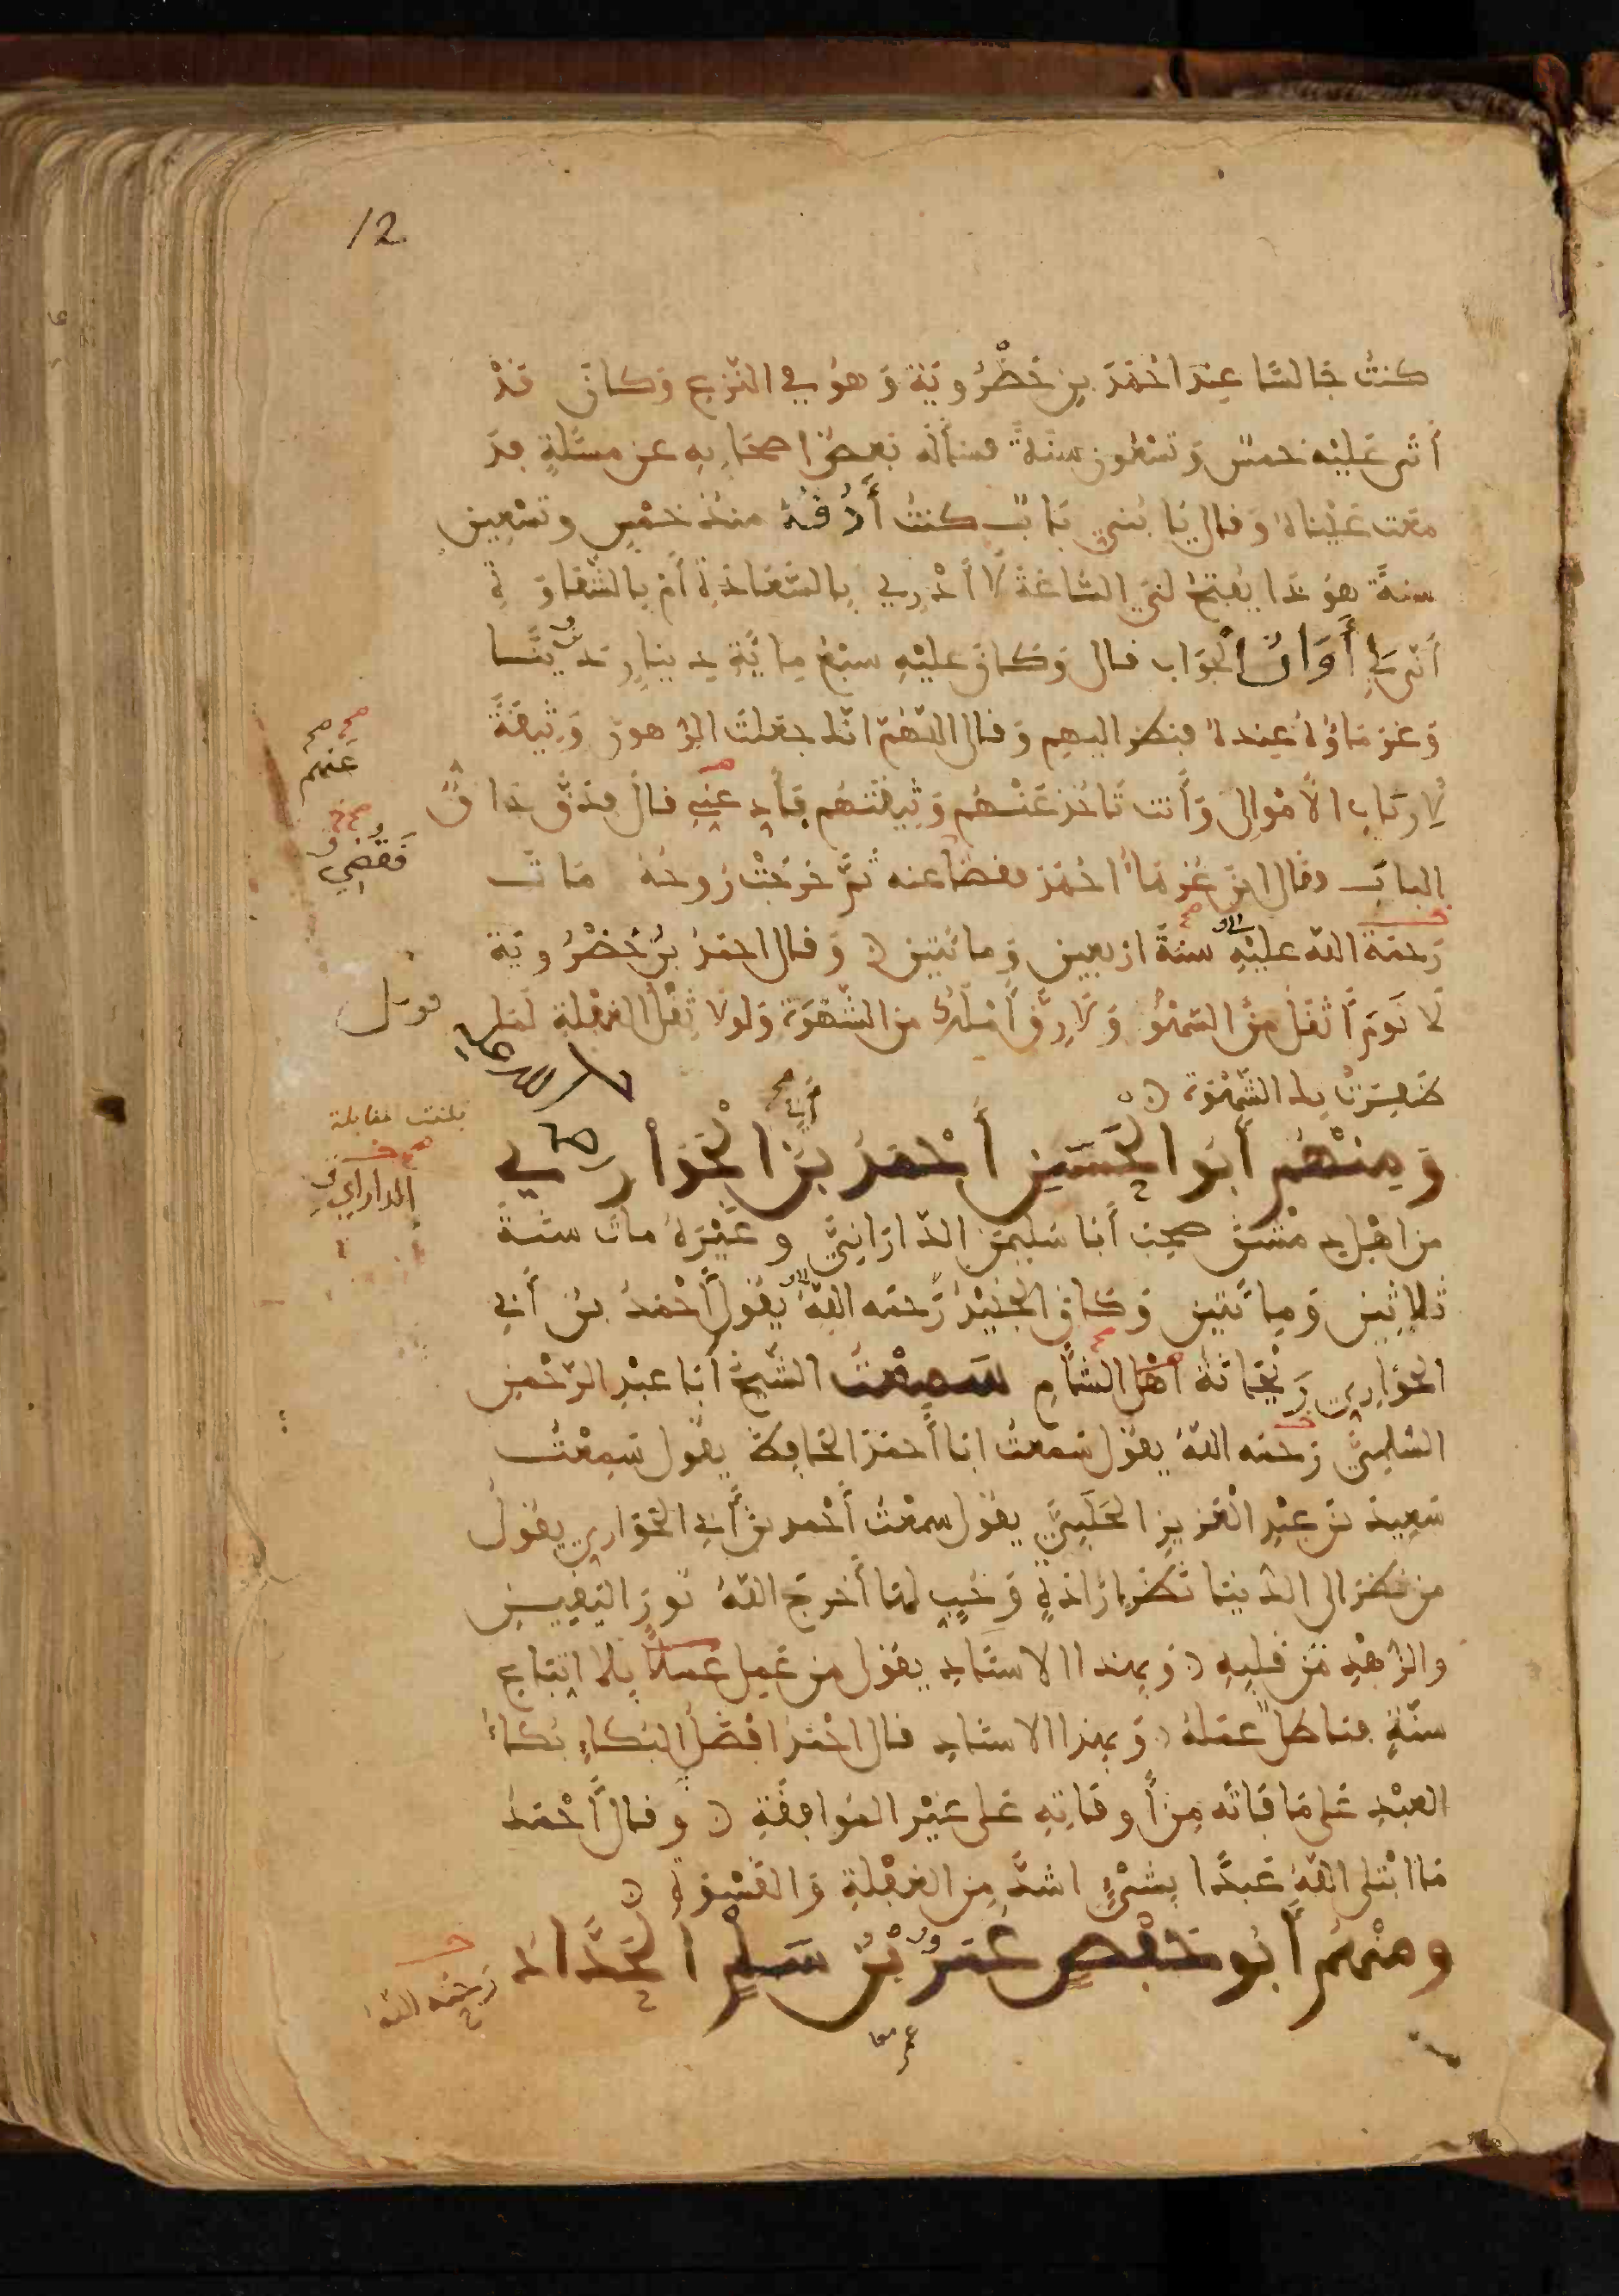 12
كنتُ جَالسًا عِندَ احْمَدَ بنِ خَضْرُويَة وَهوُ في النّزع وَكانَ قَدْ
أَتَى عَليْه خمسٌ وَتسْعُون سنَةً فسَألهُ بَعضُ اصحَابِهِ عن مسئلةٍ فدَ
مَعت عَيْناهُ وَقال يَا بُني بَابٌ كنتُ أَدُقّهُ منذُ خمْسٍ وتسْعِين
سنةً هوَ ذَا يُفتحُ ليَ السَّاعَةَ لَا أدْرِي بِالسّعَادَةِ أمْ بِالشّقَاوَةِ
أنّى لِي أَوَانُ الجَوَاب قال وَكانَ عليْهِ سبْعُ مِائَةِ دِينارٍ دَيْنًا
وَغرَمَاؤُهُ عِندهُ فنظر اليهِم وَقال اللّهُمّ انّك جعَلتَ الرُّهونَ وَثِيقَةً
لِأربَابِ الأمْوالِ وَأنت تَأخُذ عَنْهُم وَثِيقَتَهُم فأَدِّ عَنِّي قالَ فدَقَّ دَاقٌّ
البابَ وقال اينَ غُرمَاءُ احْمَد فقضَا عنه ثمَّ خرَجَتْ رُوحُهُ مَاتَ
رَحمَةُ اللّه عليْهِ سنةَ اربعين وَمائتين وَقال احمَدُ بْن خَضْرُويَة
لَا نَومَ أثقَلُ منَ الغفلةِ وَلَا رِقَّ أمْلَكُ من الشّهوَة وَلولَا ثِقْلُ الغَفْلة لَمَا
ظَفِرَتْ بك الشَّهْوَة
وَمِنْهُم أبُو الحُسَين أَحْمَدُ بْنُ أبي الحَوَارِي
من اهْل دِمشقَ صحِبَ أبَا سُليمَن الدّارَانِيَّ وغَيْرَهُ ماتَ سنَةَ
ثلاثِين وَمِائتين وَكانَ الجُنَيْدُ رَحمَه اللّه يقُول أَحْمَدُ بْن أبِي
الحَوَارِي رَيْحَانَةُ اهْل الشَّامِ سَمِعْتُ الشّيْخ أبَا عبْدِ الرّحْمن
السّلمِيَّ رَحمَه اللّهُ يقُول سَمعْتُ ابَا أَحمَد الحَافِظ يقُول سَمِعْتُ
سَعِيدَ بْن عبْدِ العَزيز الحَلَبِيَّ يقُول سمعْتُ أَحْمدَ بنَ أَبي الحَوَارِي يقُول
من نظَر الى الدّنيَا نَظرَ ارَادَةٍ وَحُبٍّ لهَا أَخرَجَ اللّهُ نُورَ اليَقِين
والزُّهْدِ مِنْ قلبِهِ وَبهذا الاسنَادِ يقُول من عَمِلَ عمَلًا بِلا اتّبَاعِ
سنّةٍ فبَاطلٌ عمَلهُ وَبهذا الاسنَادِ قال احْمَدُ افْضَلُ البُكاءِ بُكاءُ
العبْدِ عَلى مَا فَاتَه مِنْ أَوقَاتِهِ عَلى غيْر المُوافقَةِ وَقال أَحْمَدُ
مَا ابْتلى اللّهُ عَبدًا بِشيْءٍ اشدَّ مِن الغفْلةِ وَالقَسْوَةِ
ومنْهم أَبُو حَفْصٍ عُمَرُ بْنُ سَلْمٍ الحَدَّاد
رَحمَه اللّه
عَنهم
فَقُضِيَ
بلغت مقابلة
الدارايي
عمر معا